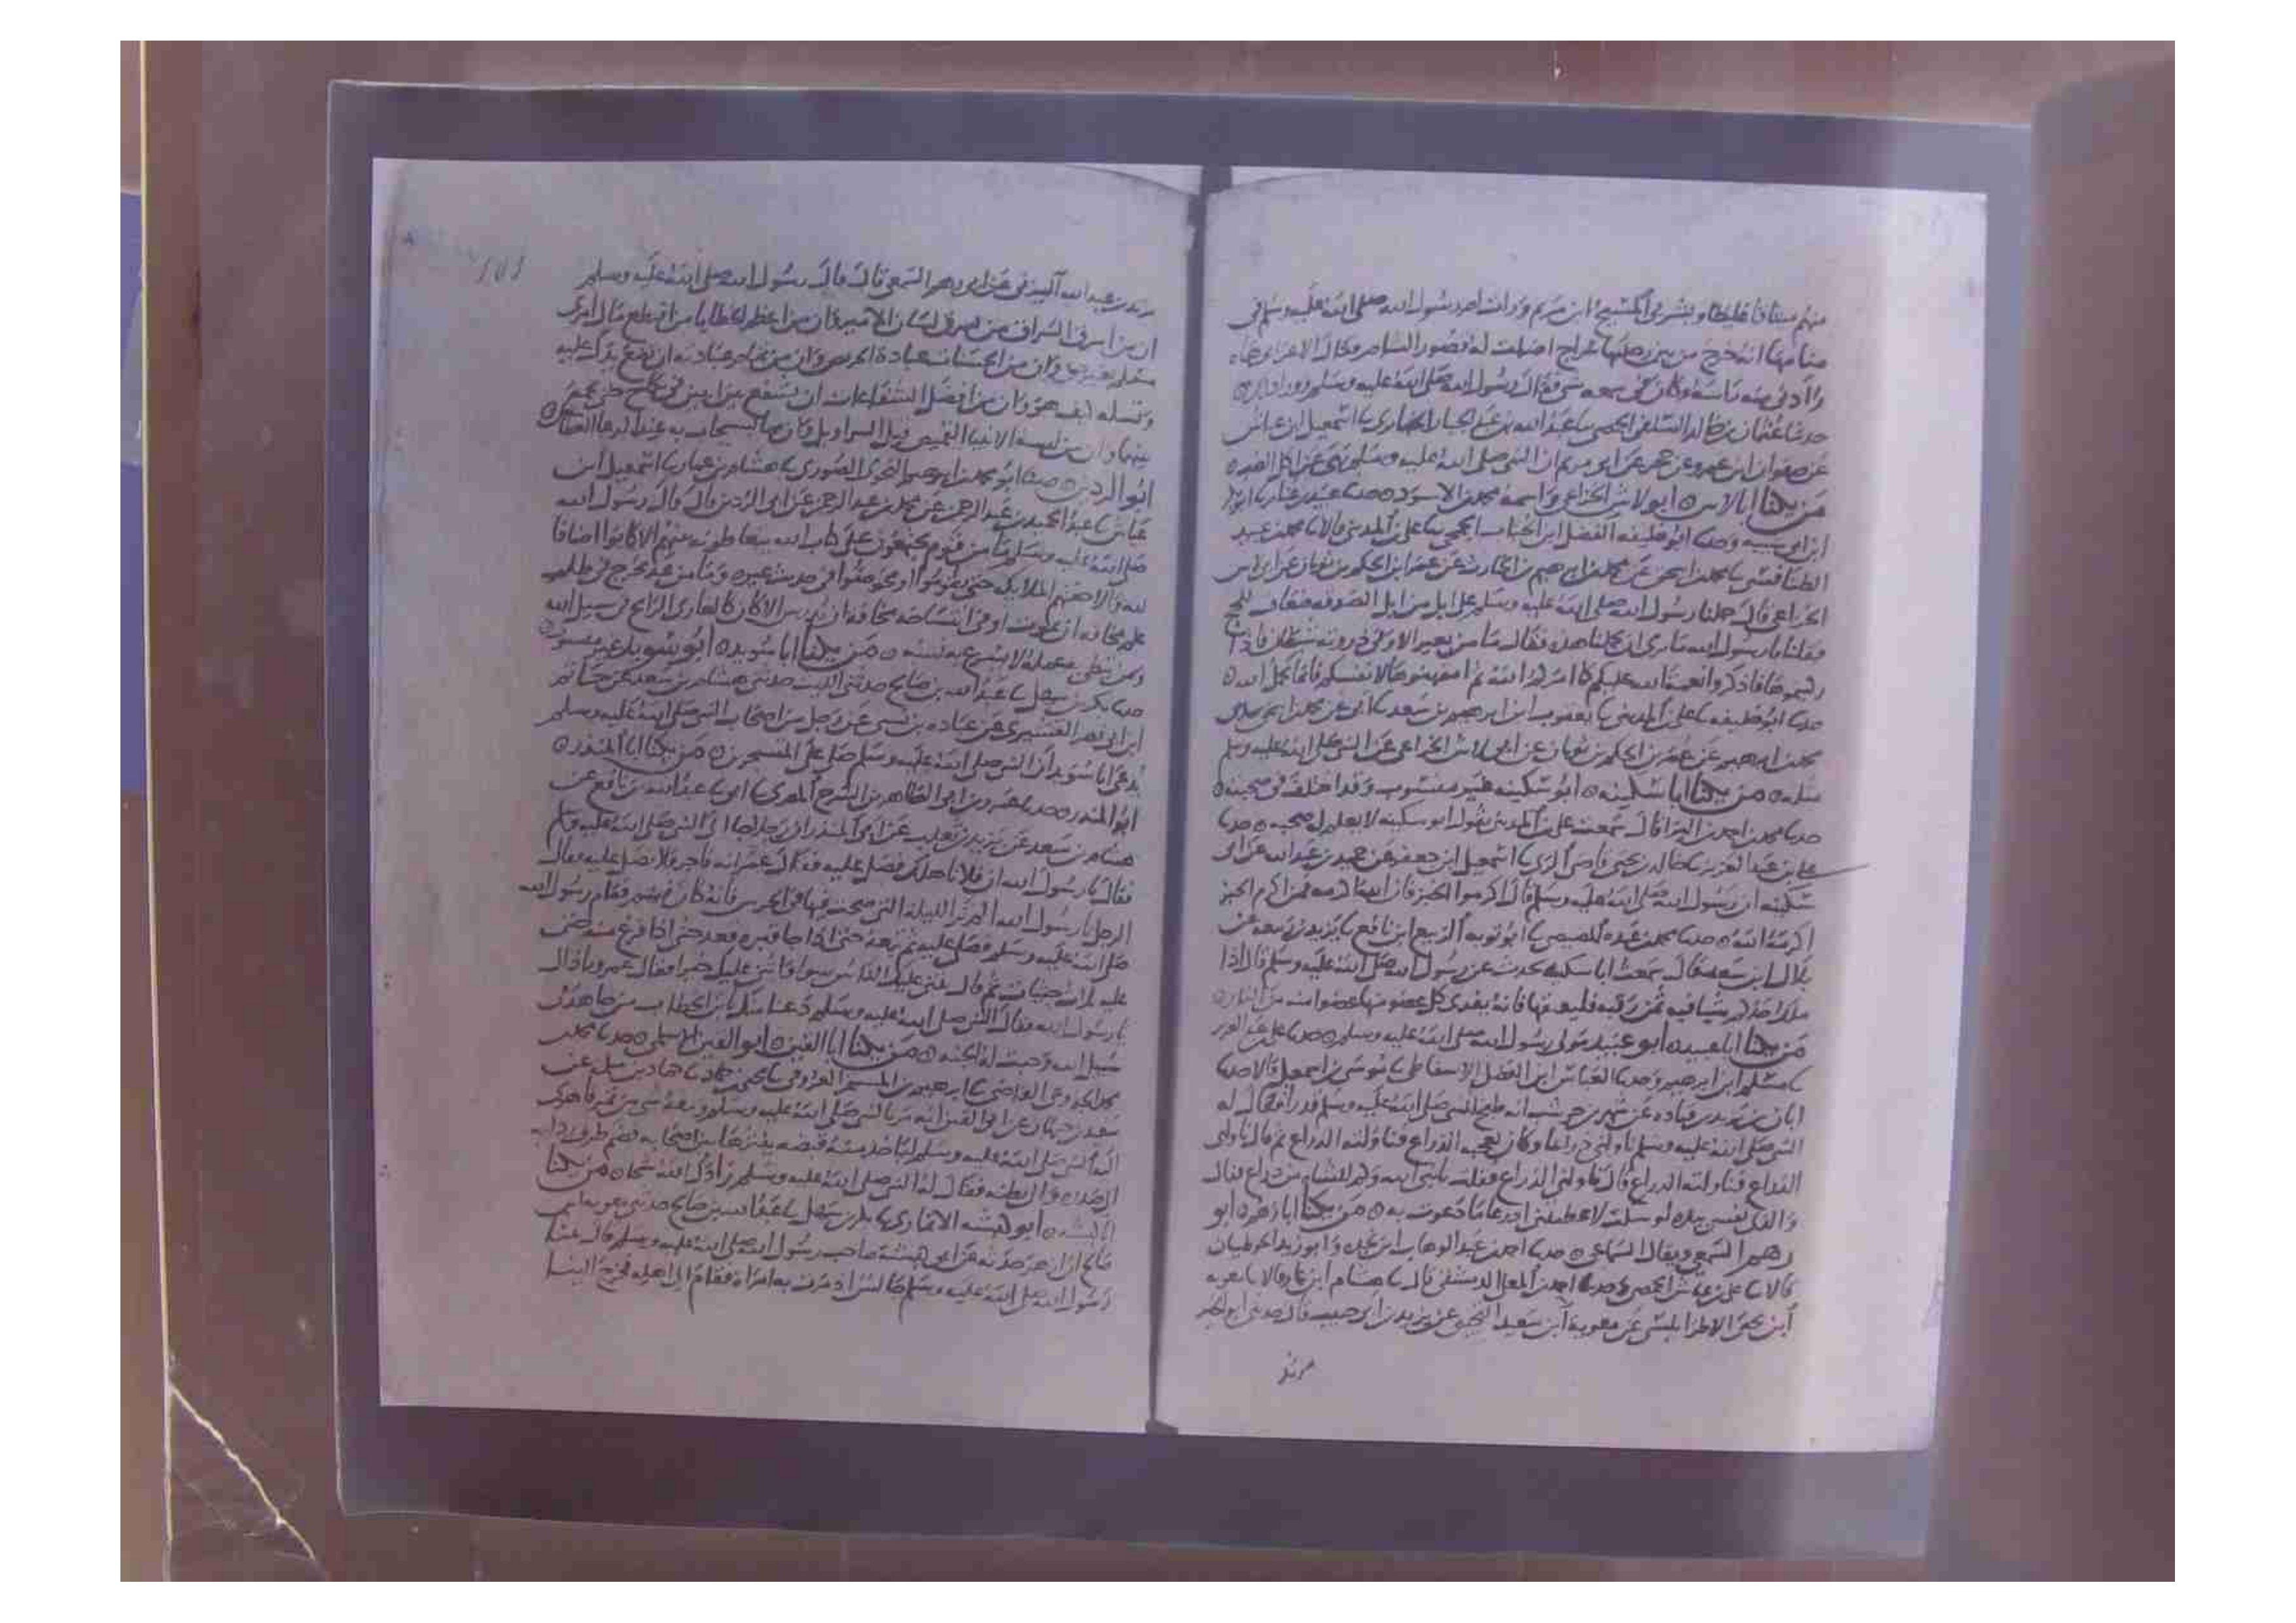 منهم ميثاقا غليظا وبشر بي المسيح ابن مريم ورات ام رسول الله صلى الله عليه وسلم في
منامها انه خرج من بين رجليها سراج اضات له قصور الشام فقال الاعرابي هاه
وادنى منه راسه وكان في سمعه شي فقال رسول الله صلى الله عليه وسلم
حدثنا عثمان بن خالد السلفي الحمصي نا عبد الله بن عبد الجبار الخبايري نا اسمعيل ابن عياش
عن صفوان ابن عمرو عن حجر عن ابي مريم ان النبي صلى الله عليه وسلم نهى عن
من يكنا ابا لاس ابو لاس الخزاعي واسمه محمد بن الاسود حدثنا عبيد بن غنام نا ابو بكر
ابن ابي شيبه وحدثنا ابو خليفه الفضل ابن الحباب الجمحي نا علي بن المديني قالا نا محمد بن عبيد
الطنافسي نا محمد بن اسحق عن محمد بن ابرهيم بن الحارث عن عمر ابن الحكم بن ثوبان عن ابي لاس
الخزاعي قال حملنا رسول الله صلى الله عليه وسلم على ابل من ابل الصدقه ضعاف للحج
فقلنا يا رسول الله ما نرى ان تحملنا هذه فقال ما من بعير الا وفي ذروته شيطان فاذا
ركبتموها فاذكروا نعمة الله عليكم كما امركم الله ثم امتهنوها لانفسكم فانما يحمل الله
حدثنا ابو خليفه نا علي بن المديني نا يعقوب ابن ابرهيم بن سعد نا ابي عن محمد بن اسحق حدثني
محمد بن ابرهيم عن عمر بن الحكم بن ثوبان عن ابي لاس الخزاعي عن النبي صلى الله عليه وسلم
مثله من يكنا ابا سكينه ابو سكينه غير منسوب وقد اختلف في صحبته
حدثنا محمد بن احمد بن البرا قال سمعت علي بن المديني يقول ابو سكينه لا يعلم له صحبه حدثنا
علي بن عبد العزيز نا خالد بن يحيى قاضي الري نا اسمعيل ابن جعفر عن حميد بن عبد الله عن ابي
سكينه ان رسول الله صلى الله عليه وسلم قال اكرموا الخبز فان الله اكرمه فمن اكرم الخبز
اكرمه الله حدثنا محمد بن عبده المصيصي نا ابو توبه الربيع ابن نافع نا يزيد بن ربيعه عن
بلال ابن سعد قال سمعت ابا سكينه يحدث عن رسول الله صلى الله عليه وسلم قال اذا
ملك احدكم شيا فيه ثمن رقبه فليعتقها فانه يفدى كل عضو منها عضوا منه من النار
من يكنا ابا عبيد ابو عبيد مولى رسول الله صلى الله عليه وسلم حدثنا علي بن عبد العزيز
نا مسلم ابن ابرهيم وحدثنا العباس ابن الفضل الاسفاطي نا موسى بن اسمعيل قالا حدثنا
ابان بن يزيد نا قتاده عن شهر بن حوشب انه طبخ للنبي صلى الله عليه وسلم قدرا فقال له
النبي صلى الله عليه وسلم ناولني ذراعا وكان يعجبه الذراع فناولته الذراع ثم قال ناولني
الذراع فناولته الذراع قال ناولني الذراع فقلت يا نبي الله وكم للشاه من ذراع فقال
والذي نفسي بيده لو سكت لاعطيتني اذرعا ما دعوت به من يكنا ابا رهم ابو
رهم السمعي ويقال السماعي حدثنا احمد بن عبد الوهاب ابن نجده وابو زيد الحوطيان
قالا نا علي بن عياش الحمصي وحدثنا احمد بن المعلى الدمشقي قال نا هشام ابن عمار قالا نا معويه
ابن يحيى الاطرابلسي عن معويه ابن سعيد التجيبي عن يزيد بن ابي حبيب قال حدثني ابو الخير
مرثد
مرثد بن عبد الله اليزني عن ابي رهم السمعي قال قال رسول الله صلى الله عليه وسلم
ان من اسرق السراق من يسرق لسان الامير وان من اعظم الخطايا من اقتطع مال امرئ
مسلم بغير حق وان من الحسنات عيادة المريض وان من تمام عيادته ان تضع يدك عليه
وتسله كيف هو وان من افضل الشفاعات ان تشفع بين اثنين في نكاح حتى تجمع
بينهما وان من لبسة الانبيا القميص قبل السراويل وان مما يستجاب به عند الدعا العطاس
ابو الردين حدثنا ابو محمد بن النحوي الصوري نا هشام بن عمار نا اسمعيل ابن
عياش نا عبد الحميد بن عبد الرحمن عن محمد بن عبد الرحمن عن ابي الردين قال قال رسول الله
صلى الله عليه وسلم ما من قوم يجتمعون على كتاب الله يتعاطونه بينهم الا كانوا اضيافا
لله والا حفتهم الملايكه حتى يقوموا او يخوضوا في حديث غيره وما من عالم يخرج في طلب
علم مخافه ان يموت او في انتساخه مخافه ان يدرس الا كان كالغازي الرايح في سبيل الله
ومن يبطئ به عمله لا يسرع به نسبه من يكنا ابا سويد ابو سويد غير منسوب
حدثنا بكر بن سهل نا عبد الله بن صالح حدثني الليث حدثني هشام بن سعد عن حاتم
ابن ابي نصر القنسري عن عباده بن نسي عن رجل من اصحاب النبي صلى الله عليه وسلم
يدعى ابا سويد ان النبي صلى الله عليه وسلم صلى على المتسحرين من يكنا ابا المنذر
ابو المنذر حدثنا عمرو بن ابي الطاهر بن السرح المصري نا ابي نا عبد الله بن نافع عن
هشام بن سعد عن يزيد بن ثعلب عن ابي المنذر ان رجلا جا الى النبي صلى الله عليه وسلم
فقال يا رسول الله ان فلانا هلك فصل عليه فقال عمر انه فاجر فلا تصل عليه فقال
الرجل يا رسول الله الم تر الليله التي صبحت فيها في الحرس فانه كان فيهم فقام رسول الله
صلى الله عليه وسلم فصلى عليه ثم تبعه حتى اذا جا قبره قعد حتى اذا فرغ منه حثى
عليه ثلاث حثيات ثم قال يثني عليك الناس سوا واثني عليك خيرا فقال عمر وما ذاك
يا رسول الله فقال النبي صلى الله عليه وسلم دعنا منك يا بن الخطاب من جاهد في
سبيل الله وجبت له الجنه من يكنا ابا القين ابو القين الاسلمي حدثنا محمد بن
القاضي نا ابرهيم بن المستمر العروقي نا يحيى بن حماد نا حماد بن سلمه عن
سعيد بن جمهان عن ابي القين انه مر بالنبي صلى الله عليه وسلم ومعه شي من تمر فاهوى
اليه النبي صلى الله عليه وسلم لياخذ منه قبضه ينثرها بين اصحابه فضم طرف ردايه
الى صدره والى بطنه فقال له النبي صلى الله عليه وسلم زادك الله شحا من يكنا
ابو هيشه الانصاري نا بكر بن سهل نا عبد الله بن صالح حدثني معويه ابن
صالح ان ازهر حدثه عن ابي صاحب رسول الله صلى الله عليه وسلم قال بينا
رسول الله صلى الله عليه وسلم جالسا اذ مرت به امراه فقام الى اهله فخرج الينا